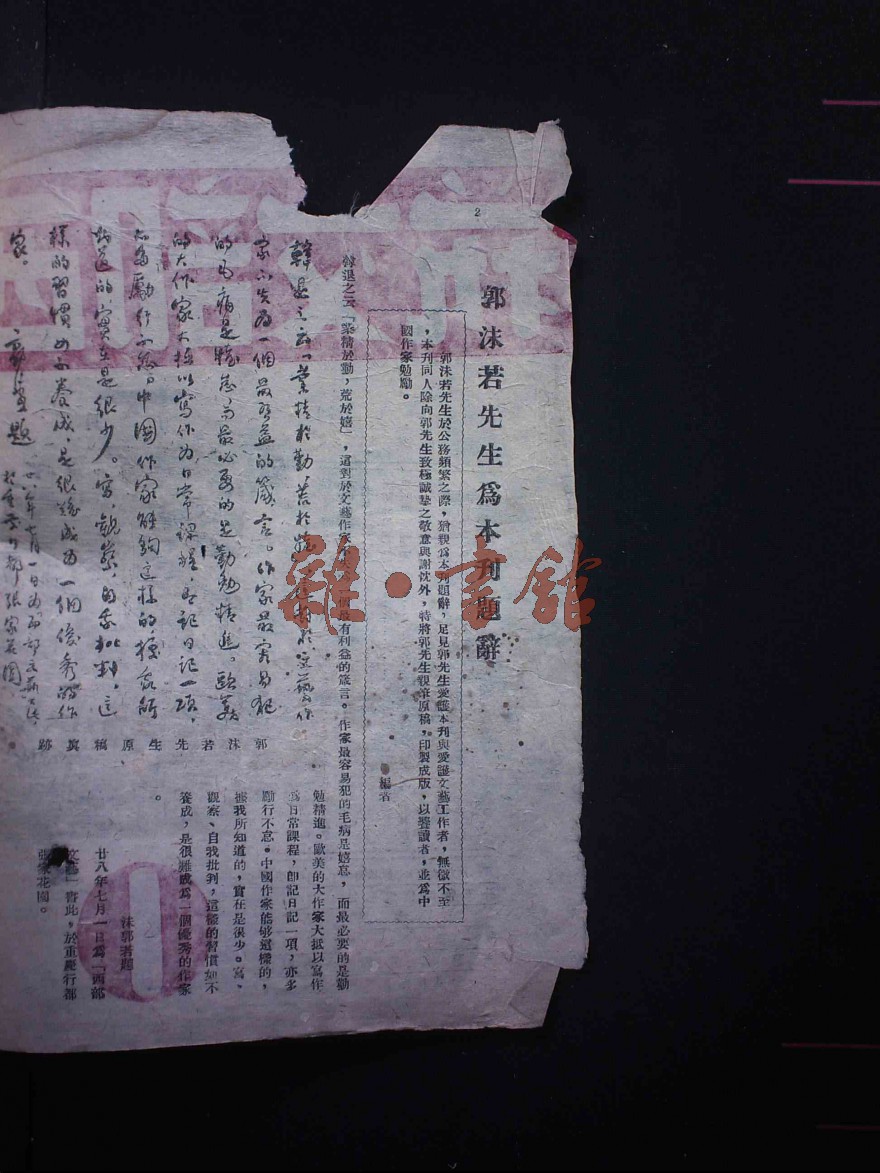 2
郭沫若先生為本刊題辭
郭沫若先生於公務頻繁之際，猶親為本刊題辭，足見郭先生愛護本刊與愛護文藝工作者，無微不至
，本刊同人除向郭先生致極誠摯之敬意與謝忱外，特將郭先生親筆原稿，印製成版，以饗讀者，並為中
國作家勉勵。
編者
韓退之云「業精於勤，荒於嬉」，這對於文藝作家不失為一個最有利益的箴言。作家最容易犯的毛病是嬉怠，而最必要的是勤
勉精進。歐美的大作家大抵以寫作
為日常課程，即記日記一項，亦多
勵行不怠。中國作家能够這樣的，
據我所知道的，實在是很少。寫、
觀察、自我批判，這樣的習慣如不
養成，是很難成為一個優秀的作家
。
沫郭若題
廿八年七月一日為「西部
文藝」書此，於重慶行都
張家花園。
韓退之云「業精於勤，荒於嬉」，這對於文藝作
家不失為一個最有益的箴言。作家最容易犯
的毛病是嬉怠，而最必要的是勤勉精進。歐美
的大作家大抵以寫作為日常課程，即記日記一項，
亦多勵行不怠。中國作家能夠這樣的，據我所
知道的，實在是很少。寫、觀察、自我批判，這
樣的習慣如不養成，是很難成為一個優秀的作
家。
郭沫若題
郭沫若先生原稿真跡
雜·書館